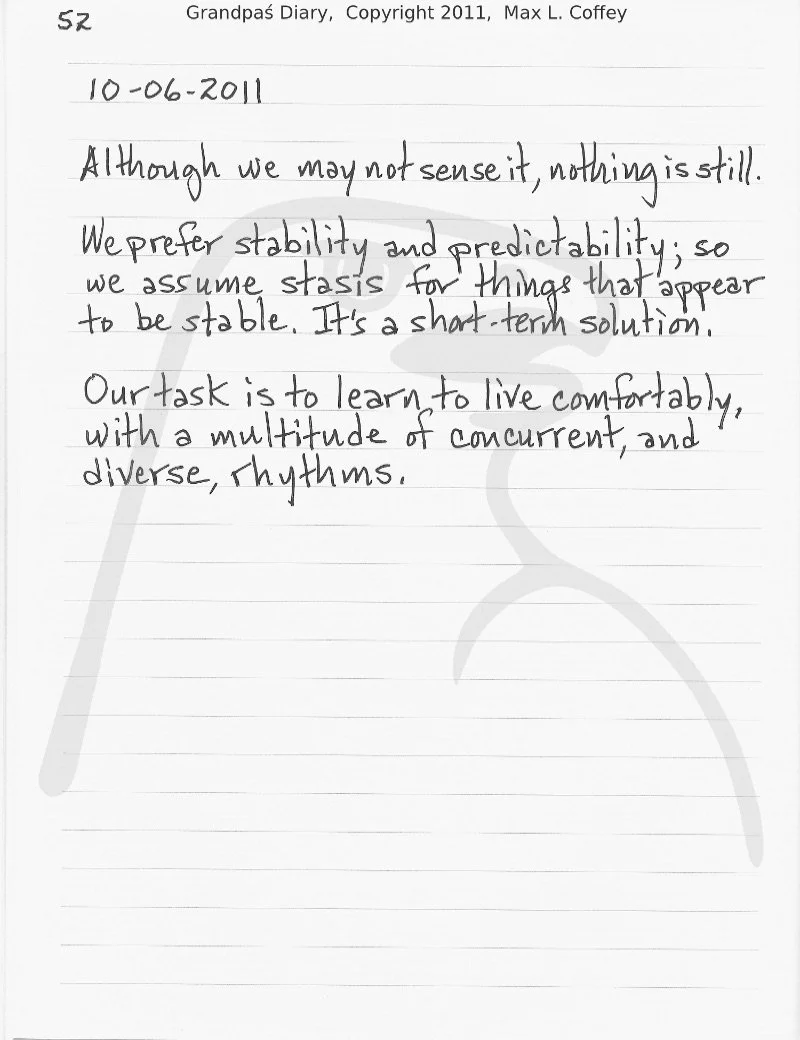 52
Grandpaś Diary, Copyright 2011, Max L. Coffey
10-06-2011
Although we may not sense it, nothing is still.
We prefer stability and predictability; so
we assume stasis for things that appear
to be stable. It's a short-term solution.
Our task is to learn to live comfortably,
with a multitude of concurrent, and
diverse, rhythms.